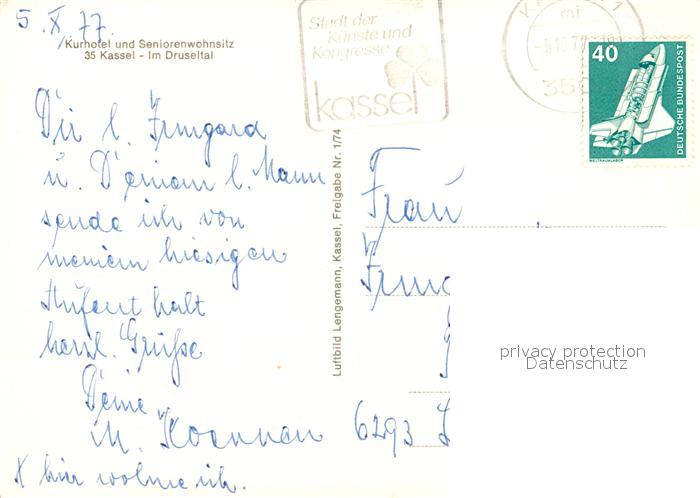 5. X. 77.
Kurhotel und Seniorenwohnsitz
35 Kassel - Im Druseltal
Dir l. Irmgard
u. Deinem l. Mann
sende ich von
meinem hiesigen
Aufenthalt
herzl. Grüße
Deine
M. Koennen
X hier wohne ich.
Luftbild Lengemann, Kassel, Freigabe Nr. 1/74
Stadt der
Künste und
Kongresse
kassel
mi
-5.10.77
350
40
DEUTSCHE BUNDESPOST
WELTRAUMLABOR
Frau
Irmg
6293 L
privacy protection
Datenschutz